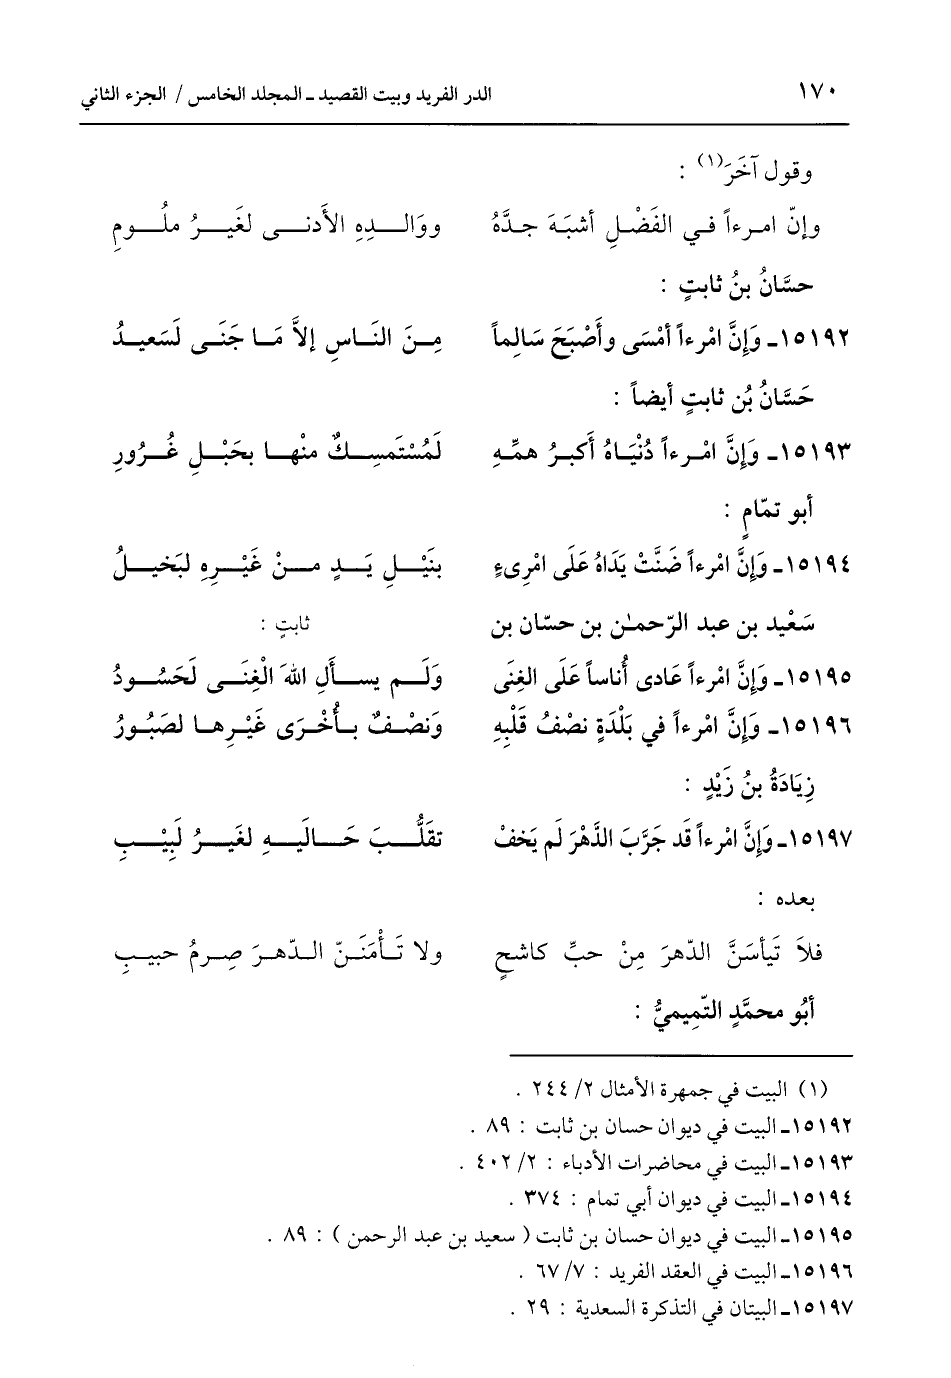 ١٧٠ الدر الفريد وبيت القصيد ـ المجلد الخامس / الجزء الثاني
وقول آخَرَ(١) :
وإنّ امرءاً في الفَضْلِ أشبَهَ جدَّهُ ووَالدِهِ الأَدنى لغَيرُ ملُومِ
حسَّانُ بنُ ثابتٍ :
١٥١٩٢ـ وَإِنَّ امْرءاً أمْسَى وأَصْبَحَ سَالِماً مِنَ النَّاسِ إلاَّ مَا جَنَى لَسَعيدُ
حَسَّانُ بُن ثابتٍ أيضاً :
١٥١٩٣ـ وَإِنَّ امْرءاً دُنْيَاهُ أَكبرُ همِّهِ لَمُسْتَمسِكٌ منْها بحَبْلِ غُرُورِ
أبو تمّامٍ :
١٥١٩٤ـ وَإِنَّ امْرءاً ضَنَّتْ يَدَاهُ عَلَى امْرِىءٍ بنَيْلِ يَدٍ منْ غَيْرِهِ لبَخيلُ
سَعْيد بن عبد الرّحمٰن بن حسّان بن ثابتٍ :
١٥١٩٥ـ وَإِنَّ امْرءاً عَادى أُناساً عَلَى الغِنَى وَلَم يسأَلِ اللهَ الْغِنَى لَحَسُودُ
١٥١٩٦ـ وَإِنَّ امْرءاً في بَلْدَةٍ نصْفُ قَلْبِهِ وَنصْفٌ بأُخْرَى غَيْرِها لصَبُورُ
زِيَادَةُ بنُ زَيْدٍ :
١٥١٩٧ـ وَإِنَّ امْرءاً قَد جَرَّبَ الدَّهْرَ لَم يَخفْ تقَلُّبَ حَاليهِ لغَيرُ لَبِيْبِ
بعده :
فلاَ تَيأسَنَّ الدّهرَ مِنْ حبِّ كاشحٍ ولا تَأمَنَنّ الدّهرَ صِرمُ حبيبِ
أبُو محمَّدٍ التّمِيميُّ :
(١) البيت في جمهرة الأمثال ٢/ ٢٤٤ .
١٥١٩٢ـ البيت في ديوان حسان بن ثابت : ٨٩ .
١٥١٩٣ـ البيت في محاضرات الأدباء : ٢/ ٤٠٢ .
١٥١٩٤ـ البيت في ديوان أبي تمام : ٣٧٤ .
١٥١٩٥ـ البيت في ديوان حسان بن ثابت ( سعيد بن عبد الرحمن ) : ٨٩ .
١٥١٩٦ـ البيت في العقد الفريد : ٧/ ٦٧ .
١٥١٩٧ـ البيتان في التذكرة السعدية : ٢٩ .